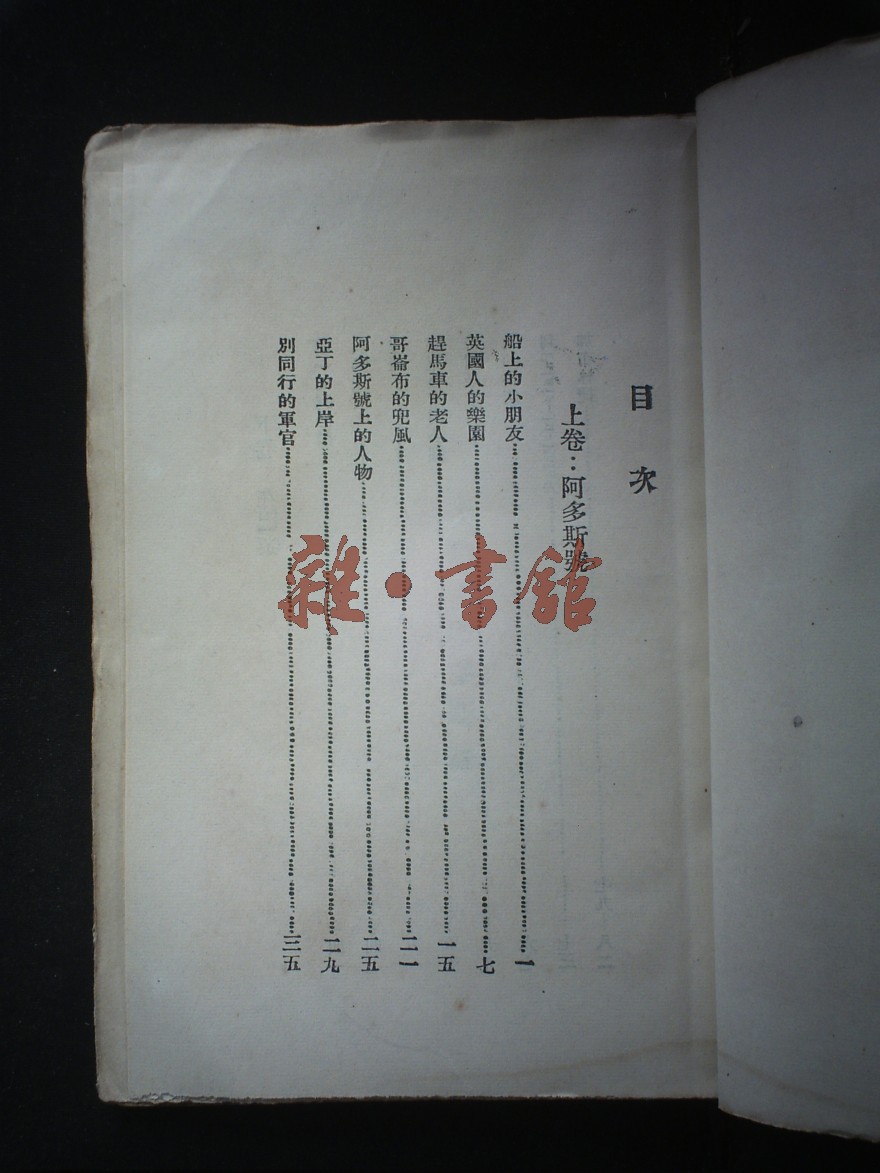 目次
上卷：阿多斯號
船上的小朋友 一
英國人的樂園 七
趕馬車的老人 一五
哥崙布的兜風 二一
阿多斯號上的人物 二五
亞丁的上岸 二九
別同行的軍官 三五
雜·書館